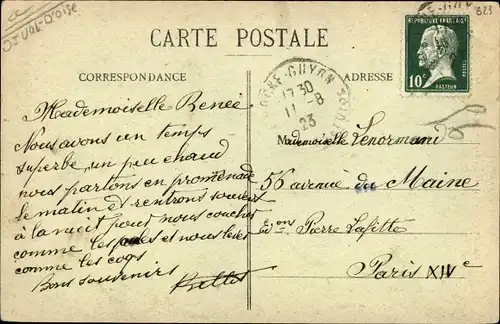 Val-d'Oise
323
CARTE POSTALE
CORRESPONDANCE
ADRESSE
REPUBLIQUE FRANÇAISE
10c
POSTES
PASTEUR
GUYON
17 30
11 -8
23
Mademoiselle Renée
Nous avons un temps
superbe, un peu chaud
nous partons en promenade
le matin et rentrons souvent
à la nuit pour nous coucher
comme les poules et nous lever
comme les coqs
Bons souvenirs
Mademoiselle Lenormand
56 avenue du Maine
Pierre Lafitte
Paris XIVe